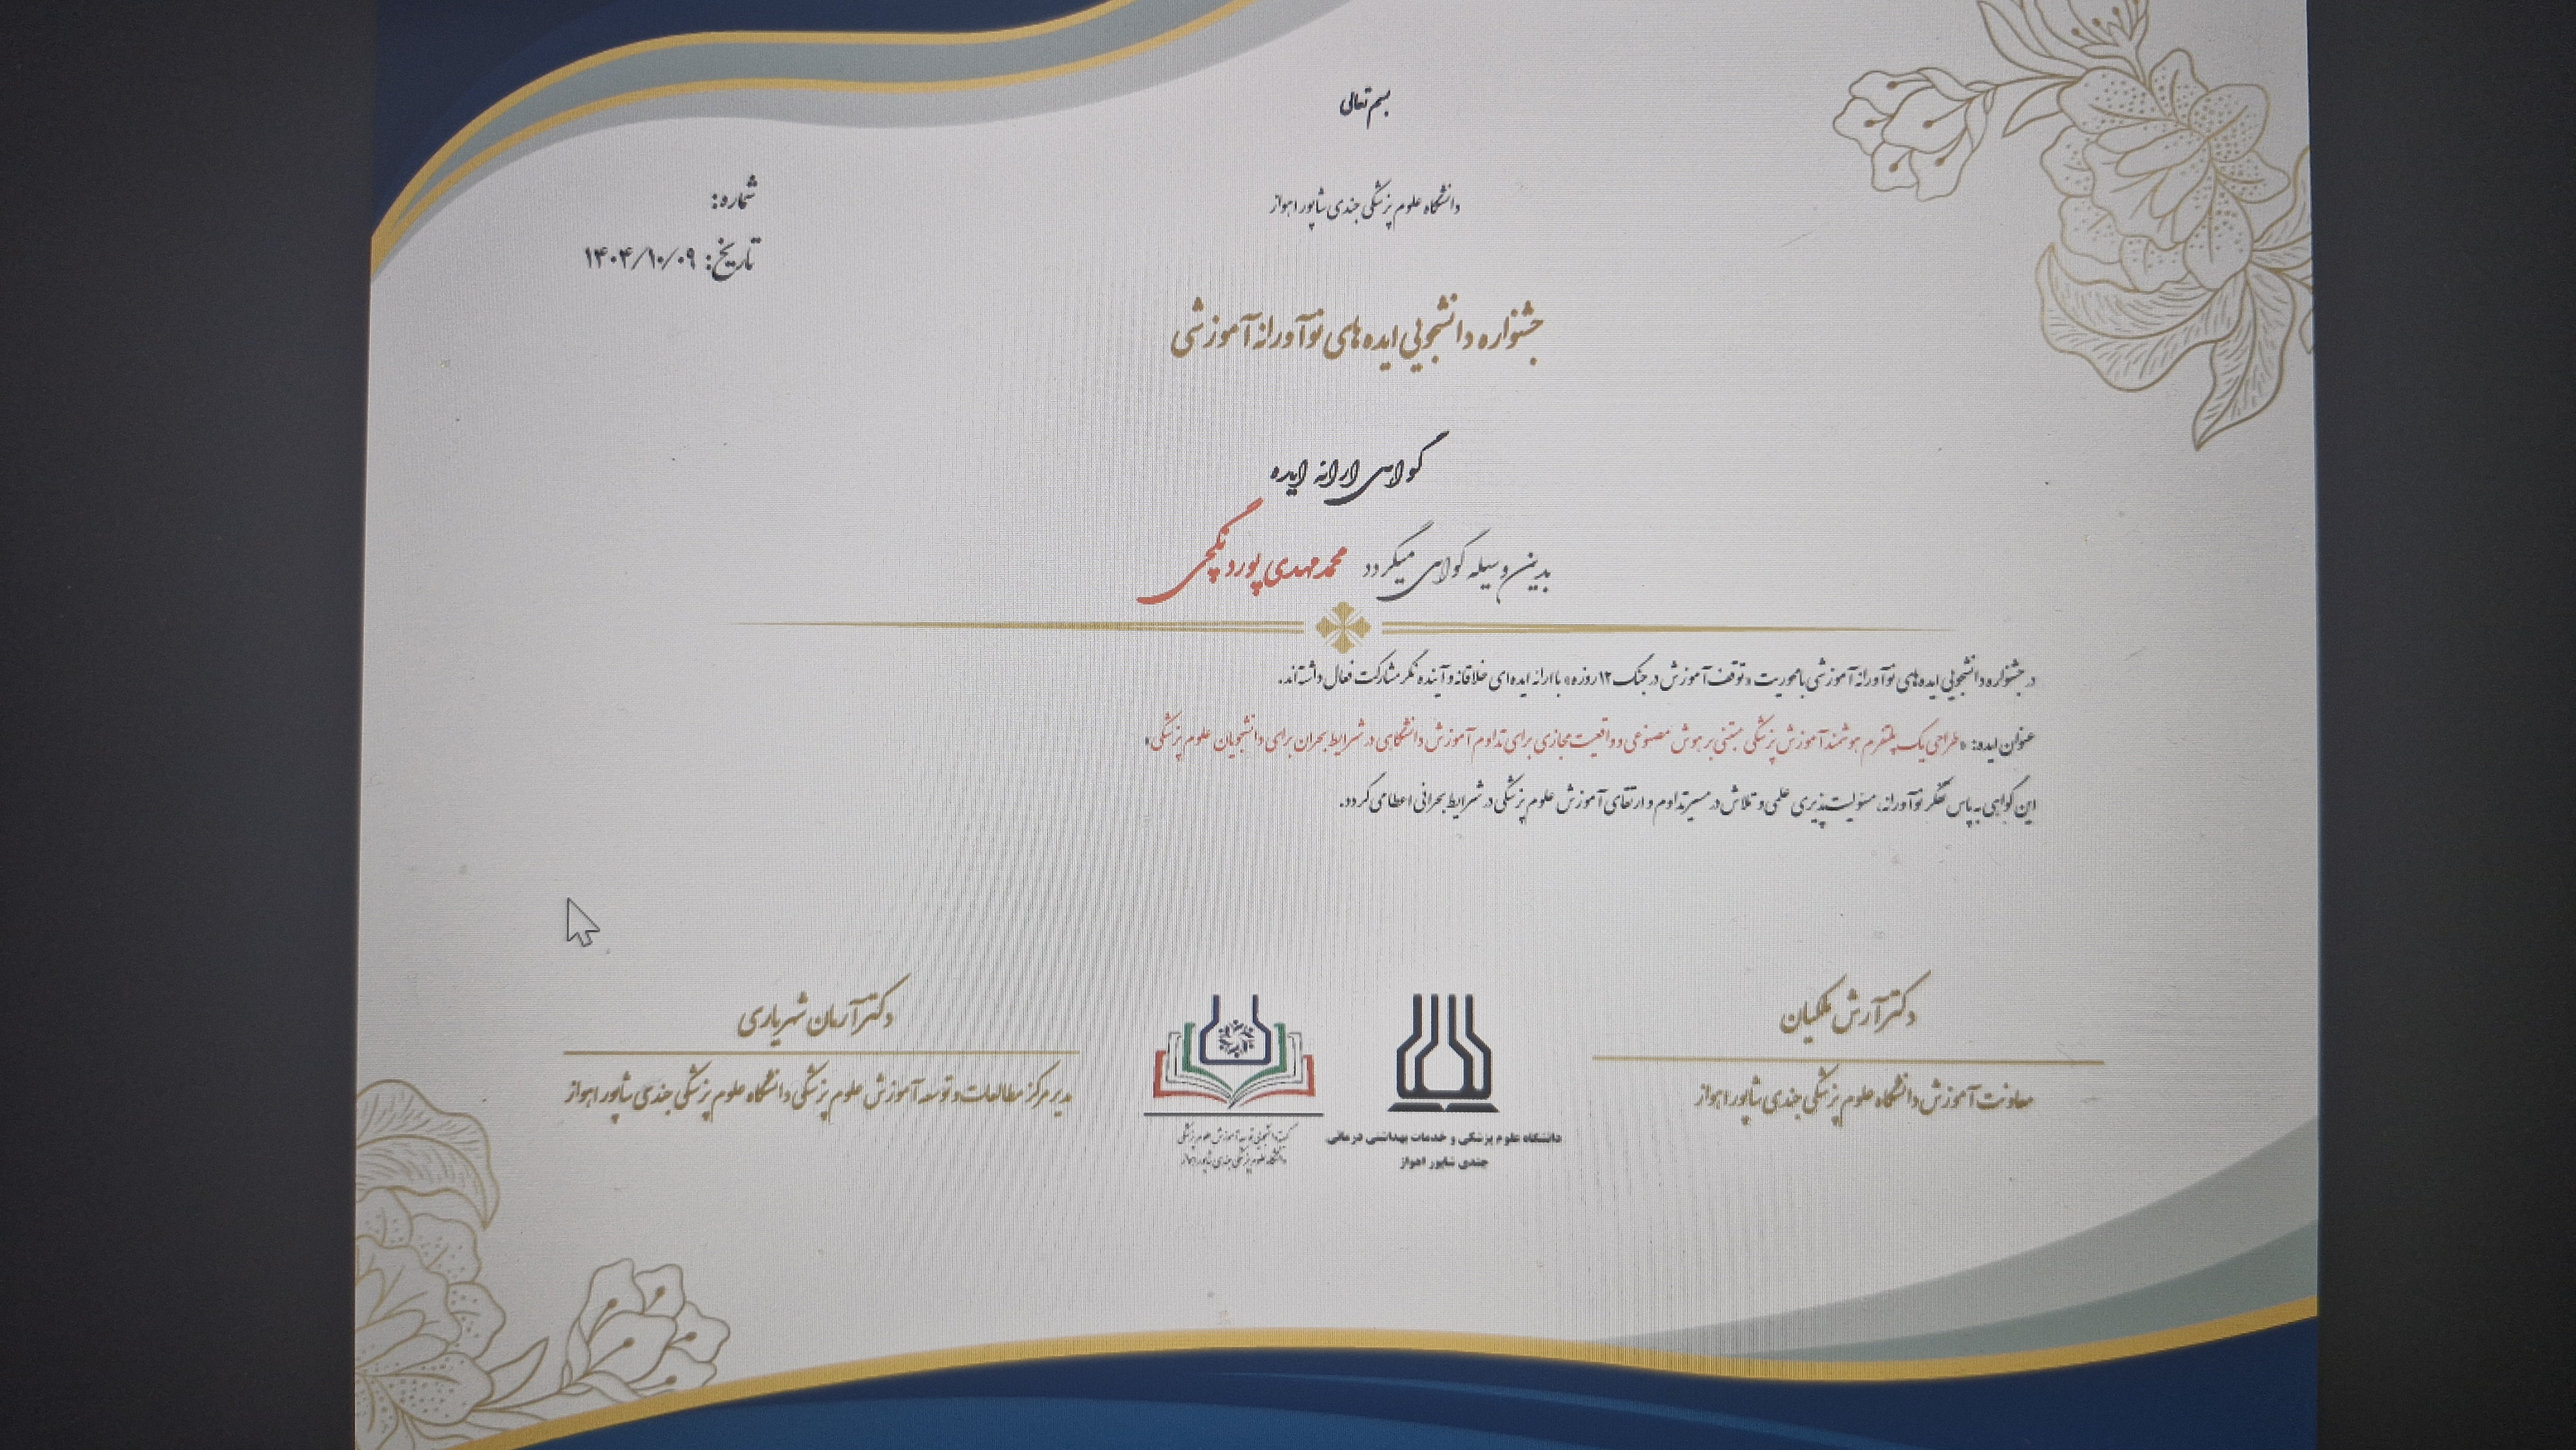 بسم تعالی
دانشگاه علوم پزشکی جندی شاپور اهواز
شماره:
تاریخ: ۱۴۰۴/۱۰/۰۹
جشنواره دانشجویی ایده های نوآورانه آموزشی
گواهی ارائه ایده
بدین وسیله گواهی میگردد محمدمهدی پوردنگچی
در جشنواره دانشجویی ایده های نوآورانه آموزشی با محوریت «توقف آموزش در جنگ ۱۲ روزه» با ارائه ایده ای خلاقانه و آینده نگر مشارکت فعال داشته اند.
عنوان ایده: «طراحی یک پلتفرم هوشمند آموزش پزشکی مبتنی بر هوش مصنوعی و واقعیت مجازی برای تداوم آموزش دانشگاهی در شرایط بحران برای دانشجویان علوم پزشکی»
این گواهی به پاس تفکر نوآورانه، مسئولیت پذیری علمی و تلاش در مسیر تداوم و ارتقای آموزش علوم پزشکی در شرایط بحرانی اعطا می گردد.
دکتر آرش ملکیان
معاونت آموزش دانشگاه علوم پزشکی جندی شاپور اهواز
دکتر آرمان شهریاری
مدیر مرکز مطالعات و توسعه آموزش علوم پزشکی دانشگاه علوم پزشکی جندی شاپور اهواز
دانشگاه علوم پزشکی و خدمات بهداشتی درمانی
جندی شاپور اهواز
کمیته دانشجویی توسعه آموزش علوم پزشکی
دانشگاه علوم پزشکی جندی شاپور اهواز